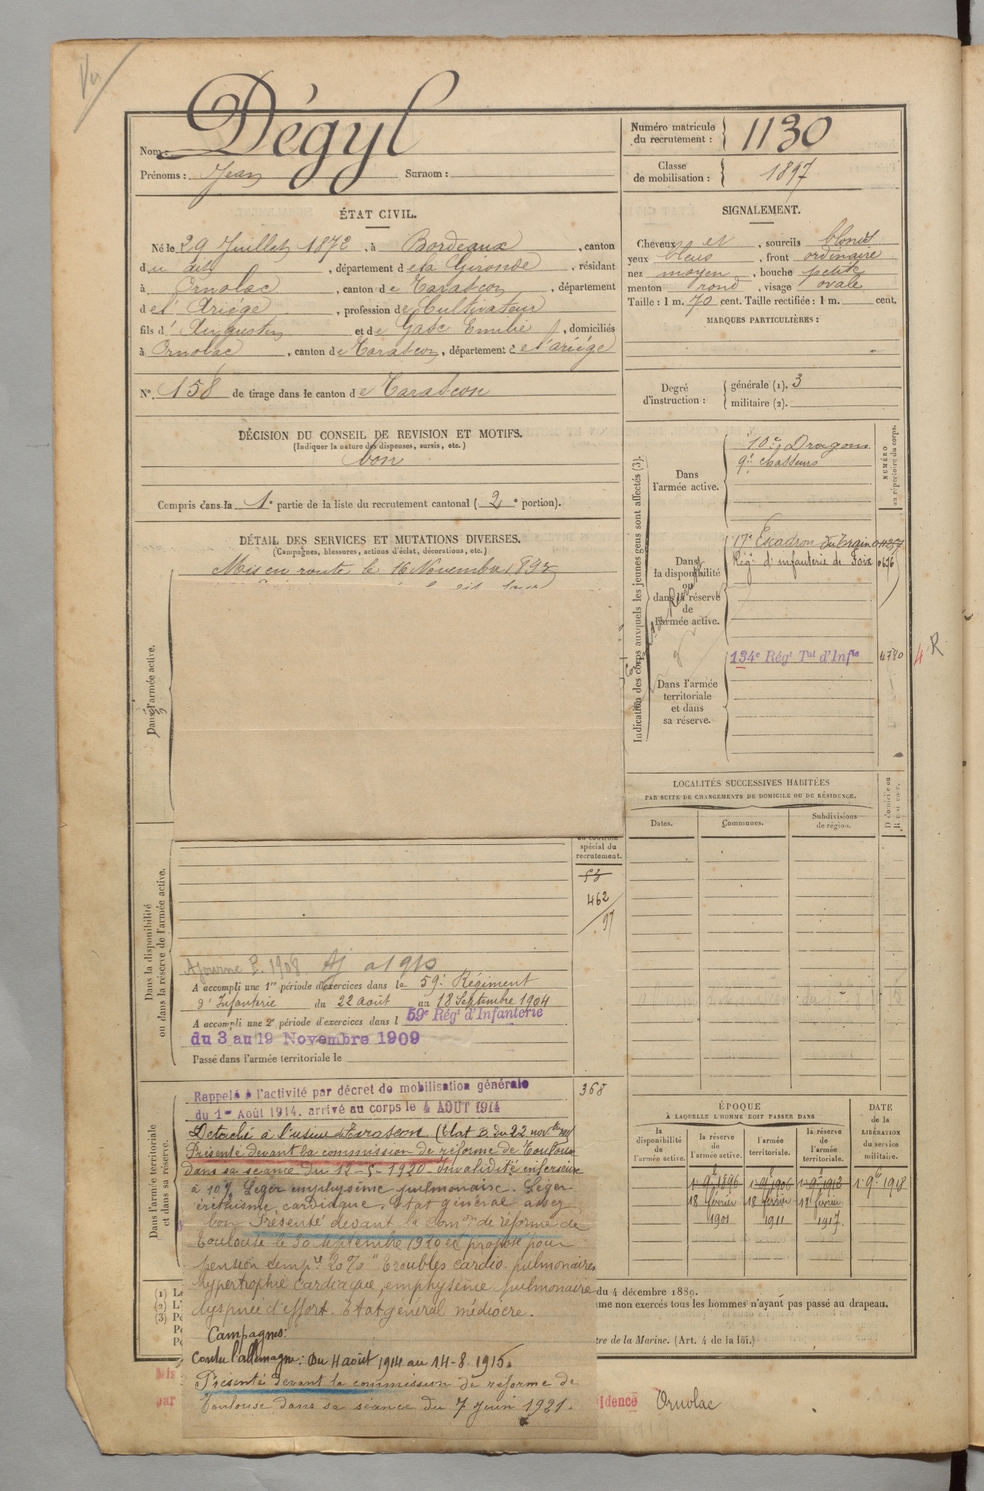 Nom : Dégyl
Prénoms : Jean Surnom :
Numéro matricule du recrutement : 1130
Classe de mobilisation : 1897
ÉTAT CIVIL.
Né le 29 Juillet 1872, à Bordeaux, canton
du dit, département de la Gironde, résidant
à Ornolac, canton de Tarascon, département
de l'Ariège, profession de Cultivateur
fils d'Augustin et de Gasc Emilie, domiciliés
à Ornolac, canton de Tarascon, département de l'ariége
N° 158 de tirage dans le canton de Tarascon
SIGNALEMENT.
Cheveux et, sourcils blonds
yeux bleus, front ordinaire
nez moyen, bouche petite
menton rond, visage ovale
Taille : 1 m. 70 cent. Taille rectifiée : 1 m. cent.
MARQUES PARTICULIÈRES :
Degré d'instruction : générale (1). 3
militaire (2).
DÉCISION DU CONSEIL DE REVISION ET MOTIFS.
(Indiquer la nature des dispenses, sursis, etc.)
bon
Compris dans la 1e partie de la liste du recrutement cantonal (2e portion).
DÉTAIL DES SERVICES ET MUTATIONS DIVERSES.
(Campagnes, blessures, actions d'éclat, décorations, etc.)
Mis en route le 16 Novembre 1893
Dans l'armée active.
Indication des corps auxquels les jeunes gens sont affectés (3).
NUMÉRO au répertoire du corps.
Dans l'armée active.
10e Dragons
9e chasseurs
Dans la disponibilité ou dans la réserve de l'armée active.
17e Escadron du train
Régt d'infanterie de Foix
Dans l'armée territoriale et dans sa réserve.
134e Régt Tal d'Infie 4780
4 R
LOCALITÉS SUCCESSIVES HABITÉES
PAR SUITE DE CHANGEMENTS DE DOMICILE OU DE RÉSIDENCE.
Dates. Communes. Subdivisions de région. D domicile ou R résidence.
spécial du recrutement.
53
462
97
Dans la disponibilité ou dans la réserve de l'armée active.
Ajourné 1908 Aj à 1910
A accompli une 1re période d'exercices dans le 59e Régiment
d'Infanterie du 22 août au 18 Septembre 1904
A accompli une 2e période d'exercices dans l 59e Régt d'Infanterie
du 3 au 19 Novembre 1909
Passé dans l'armée territoriale le
Dans l'armée territoriale et dans sa réserve.
368
Rappelé à l'activité par décret de mobilisation générale
du 1er Août 1914. arrivé au corps le 4 AOUT 1914
Détaché à l'usine de Tarascon (Etat B. du 22 novbre
Présenté devant la commission de réforme de Toulouse
dans sa séance du 18-5-1920 Invalidité inférieure
à 10% Léger emphysème pulmonaire. Léger
éréthisme cardiaque. Etat général assez
bon Présenté devant la Comon de réforme de
Toulouse le 30 septembre 1920 et proposé pour
pension temp. 20% "Troubles cardio-pulmonaires
hypertrophie cardiaque, emphysème pulmonaire
dyspnée d'effort. Etat général médiocre.
Campagnes:
Contre l'allemagne: Du 4 août 1914 au 14-8-1915.
Présenté devant la commission de réforme de
Toulouse dans sa séance du 7 juin 1921.
ÉPOQUE
À LAQUELLE L'HOMME DOIT PASSER DANS
la disponibilité de l'armée active. la réserve de l'armée active. l'armée territoriale. la réserve de l'armée territoriale.
DATE de la LIBÉRATION du service militaire.
1 9e 1896 1 9e 1906 1 9e 1912 1 9e 1918
18 février 1901 18 février 1911 18 février 1917
(1) Le
(2) L'
(3) Pe
du 4 décembre 1889.
mme non exercés tous les hommes n'ayant pas passé au drapeau.
tre de la Marine. (Art. 4 de la loi.)
par
idence Ornolac